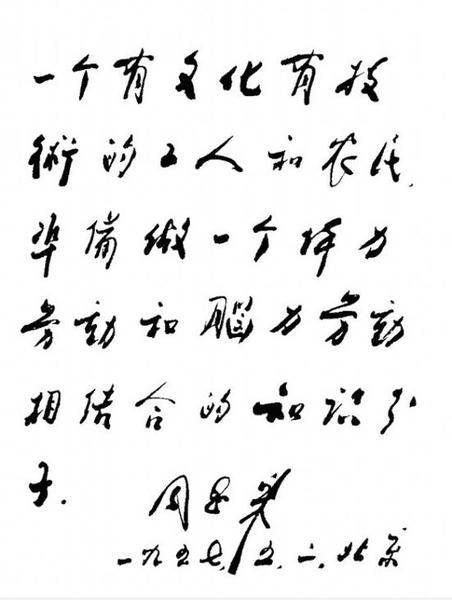 一个有文化有技
術的工人和农民,
准備做一个体力
劳動和腦力劳動
相结合的知识分
子.
周恩来
一九五七,五.二.北京